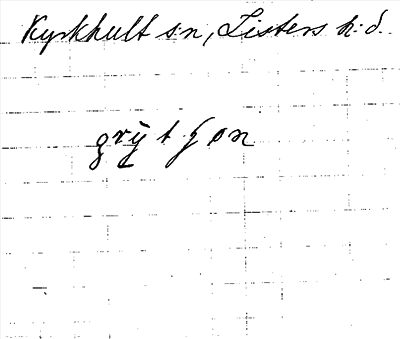 Kyrkhult sn, Listers h:d.
grỳtʃɷn